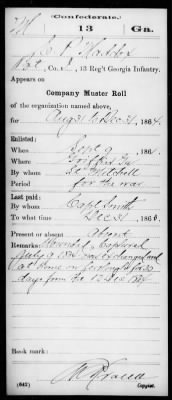 (Confederate.)
M 13 Ga.
Pvt., Co. I, 13 Reg't Georgia Infantry.
Appears on
Company Muster Roll
of the organization named above,
for Aug 31 to Dec 31, 1864.
Enlisted:
When Sept 9, 186
Where Griffin Ga
By whom Mitchell
Period for the war
Last paid:
By whom Capt Smith
To what time Dec 31, 186
Present or absent Absent
Remarks: Wounded & Captured
exchanged and
at home on furlough for 30
days from the Dec 1864
Book mark:
(642) Copyist.